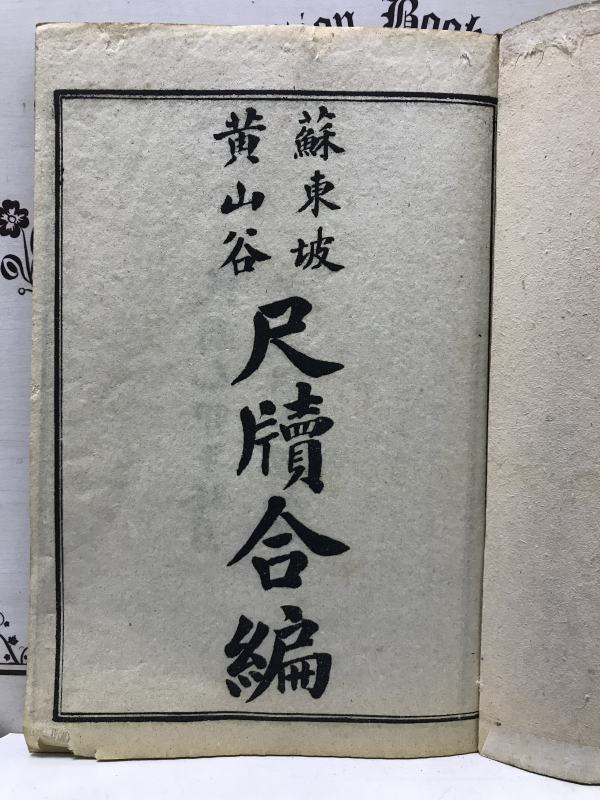 蘇東坡
黄山谷
尺牘合編
Book